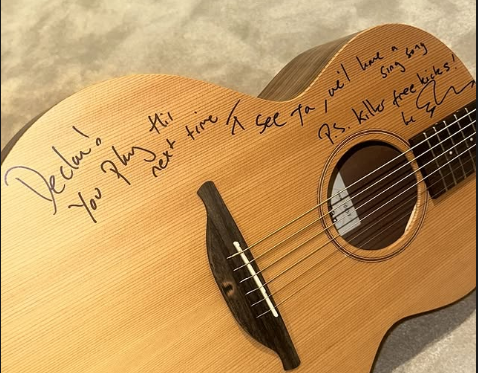 Declan!
You play this
next time I see ya, we'll have a
sing song
P.S. killer free kicks!